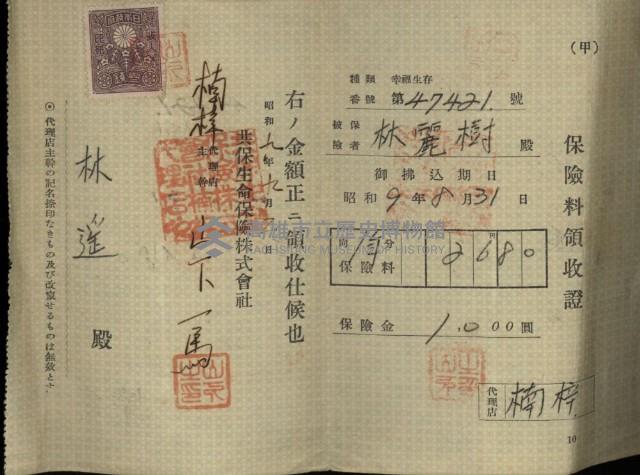 (甲)
保險料領收證
種類 幸福生存
番號 第47421號
被保險者 林麗樹 殿
御拂込期日
昭和9年8月31日
向1年分保險料 2680
圓
保險金 1.000圓
代理店 楠梓
10
右ノ金額正ニ領收仕候也
昭和九年九月 日
共保生命保險株式會社
楠梓代理店主幹 山下一馬
林遥 殿
◎代理店主幹の記名捺印なきもの及び改竄せるものは無效とす
高雄市立歷史博物館
KAOHSIUNG MUSEUM OF HISTORY